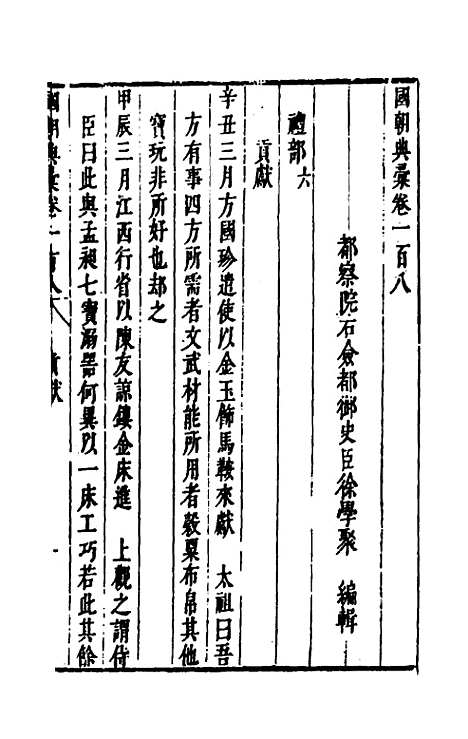 國朝典彙卷一百八
都察院右僉都御史臣徐學聚 編輯
禮部六
貢獻
辛丑三月方國珍遣使以金玉飾馬鞍來獻 太祖曰吾
方有事四方所需者文武材能所用者穀粟布帛其他
寶玩非所好也却之
甲辰三月江西行省以陳友諒鏤金床進 上觀之謂侍
臣曰此與孟昶七寶溺器何異以一床工巧若此其餘
國朝典彙卷一百八 貢獻 一